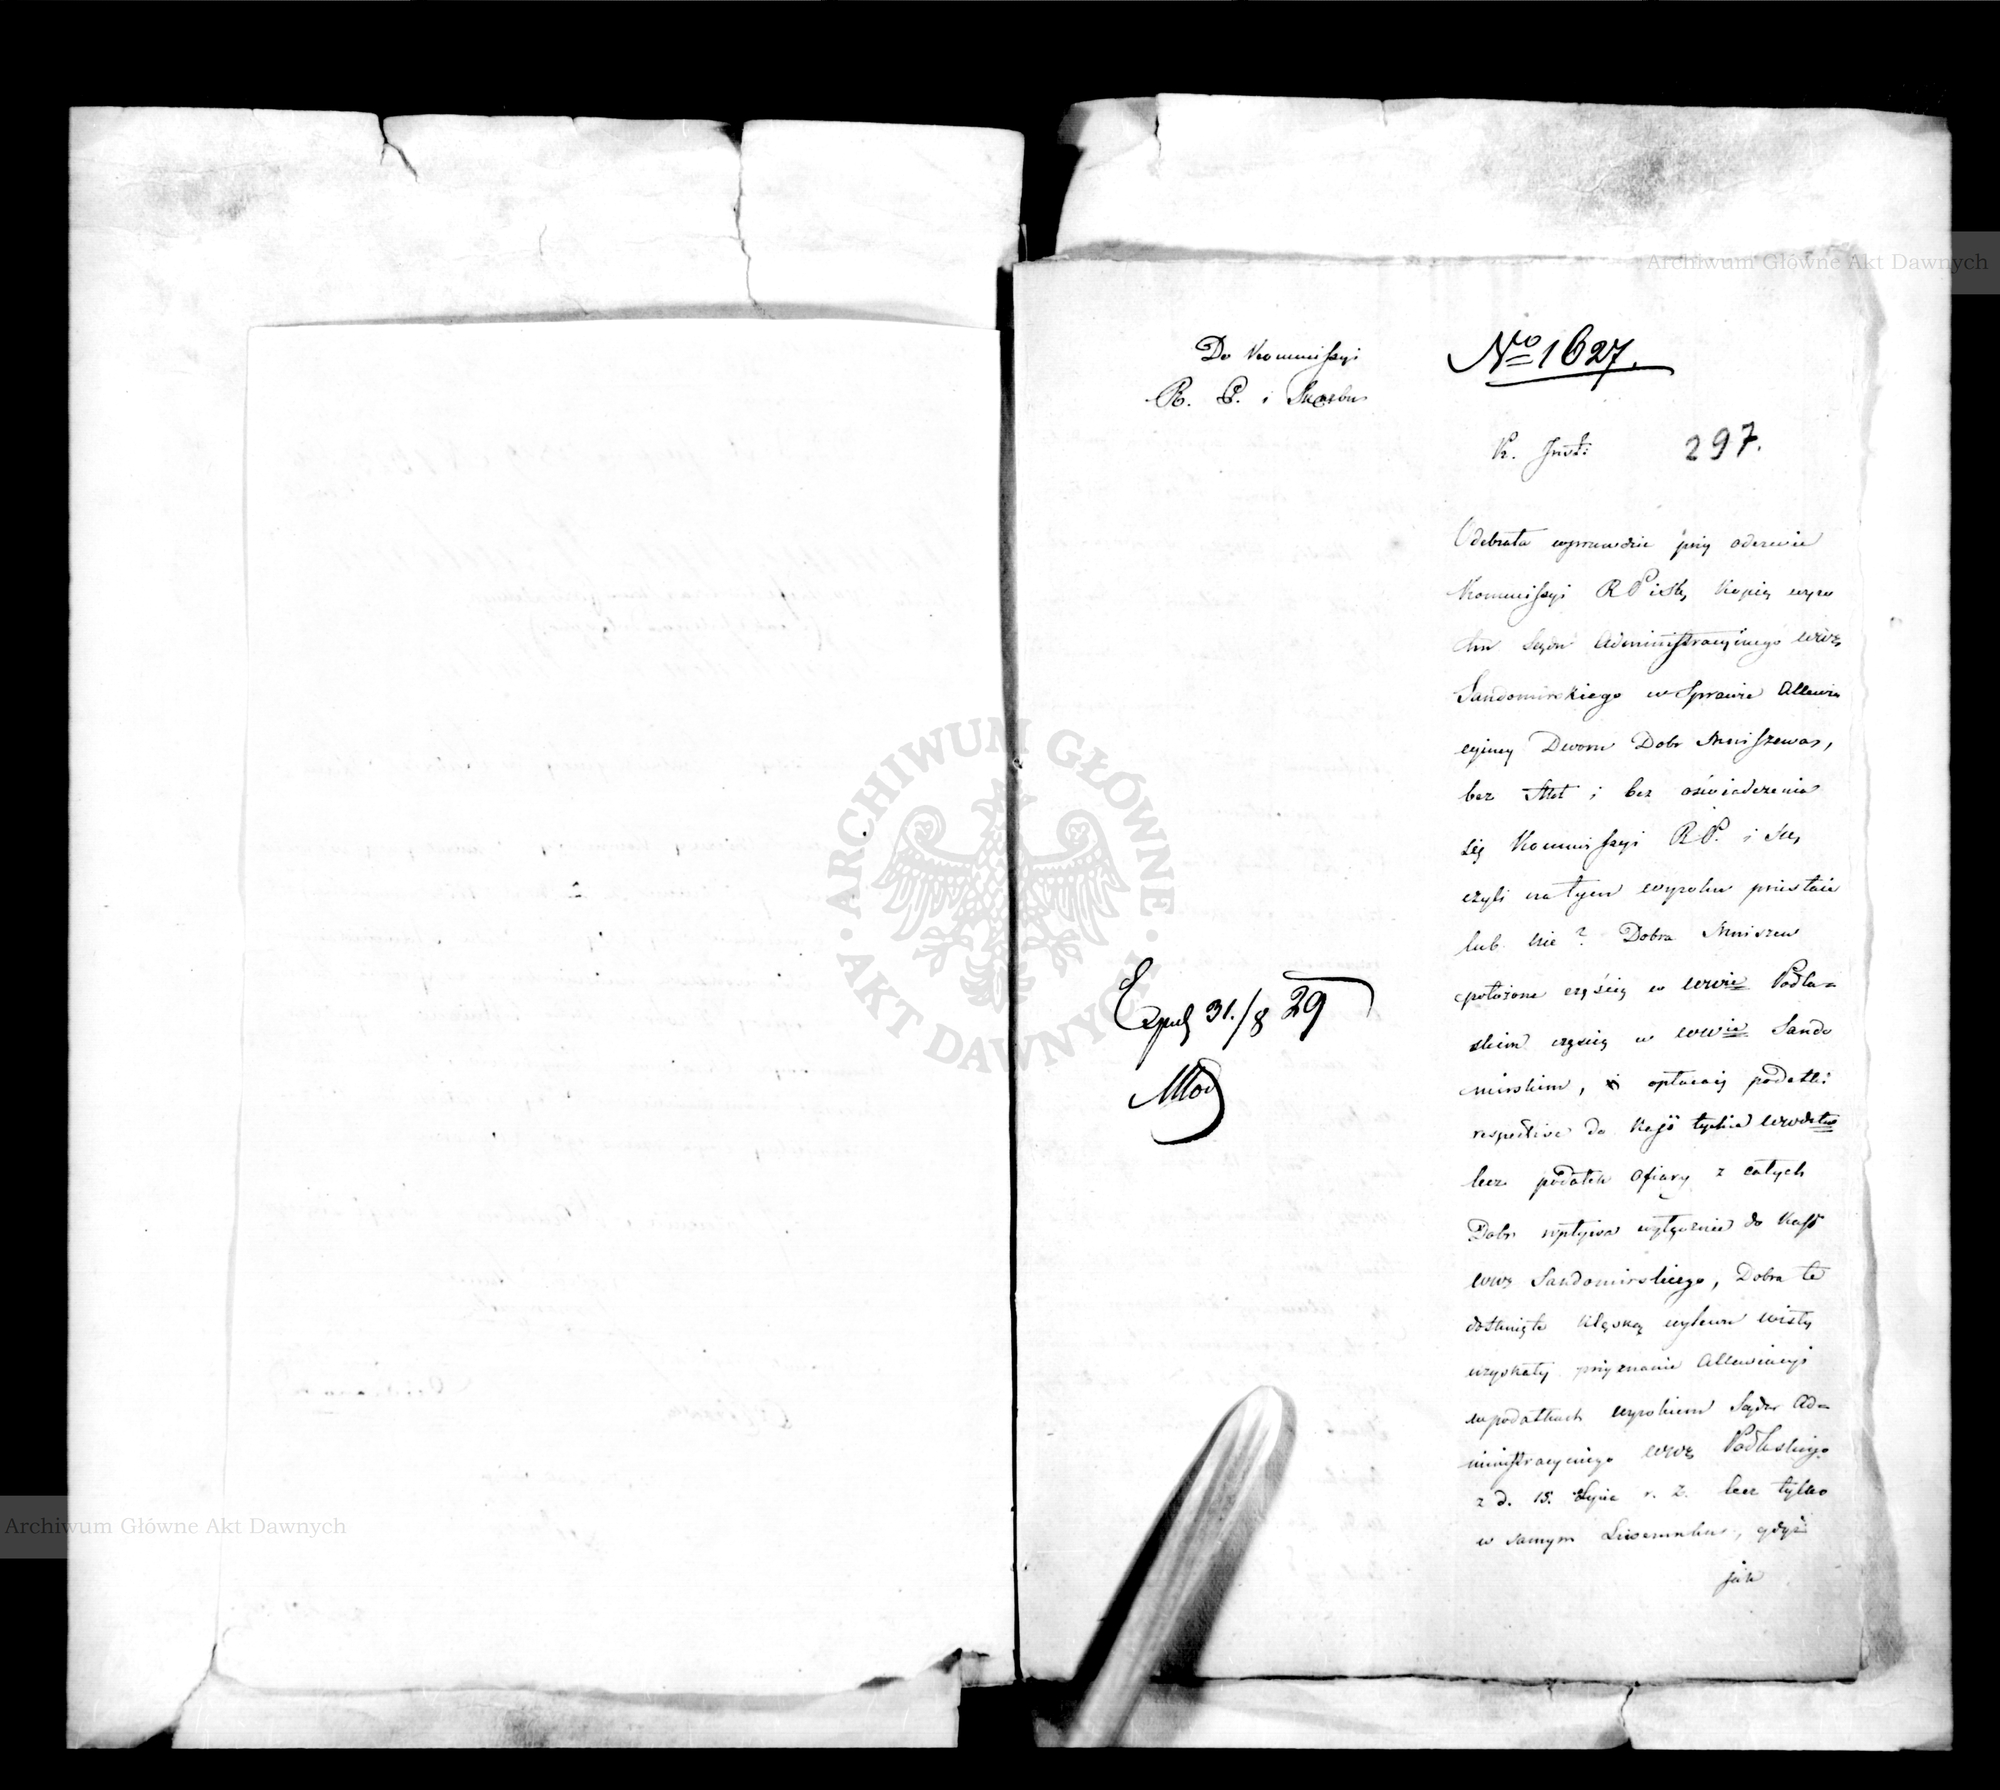 Archiwum Główne Akt Dawnych
Do Kommissyi
R. P. i Skarbu
No 1627.
K. Jnst:
297.
Odebrała wprawdzie przy odezwie
Kommissyi R P i Sk, Kopią wyro
ku Sądu Administracyinego wwa
Sandomirskiego w Sprawie Allewia
cyiney Dworu Dobr Mniszewa,
bez Akt i bez oświadczenia
się Kommissyi R P. i Sk,
czyli na tym wyroku przestaie
lub nie? Dobra Mniszew
położone częścią w wwie Podla=
skim częścią w wwie Sando
mirskim, opłacaią podatki
respective do Kass tychże wwdztw
lecz podatek Ofiary z całych
Dobr wpływa wyłącznie do Kass
wwa Sandomirskiego, Dobra te
dotknięte klęską wylewu Wisły
uzyskały przyznanie Allewiacyi
w podatkach wyrokiem Sądu Ad=
ministracyinego wwa Podlaskiego
z d. 15. Lipca r. z. lecz tylko
w samym Liwerunku, gdyż
jak
31./8 29
ARCHIWUM GŁÓWNE
AKT DAWNYCH
Archiwum Główne Akt Dawnych